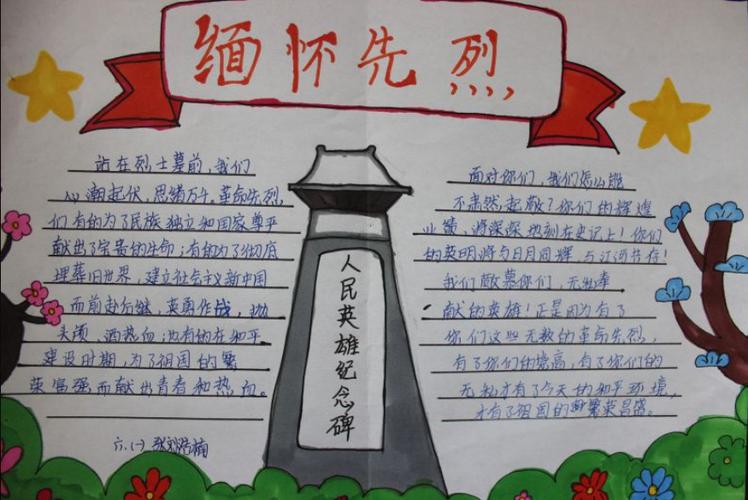 缅怀先烈
站在烈士墓前,我们
心潮起伏,思绪万千,革命先烈,
们有的为了民族独立和国家尊严
献出了宝贵的生命;有的为了彻底
埋葬旧世界,建立社会主义新中国
而前赴后继,英勇作战,抛
头颅、洒热血;也有的在和平
建设时期,为了祖国的繁
荣富强而献出青春和热血。
六.(一)
人民英雄纪念碑
面对你们,我们怎么能
不肃然起敬?你们的辉煌
业绩,将深深地刻在史记上!你们
的英明将与日月同辉,与江河共存!
我们敬慕你们,无私奉
献的英雄!正是因为有了
你们这些无数的革命先烈,
有了你们的崇高,有了你们的
无私才有了今天的和平环境,
才有了祖国的繁荣昌盛。